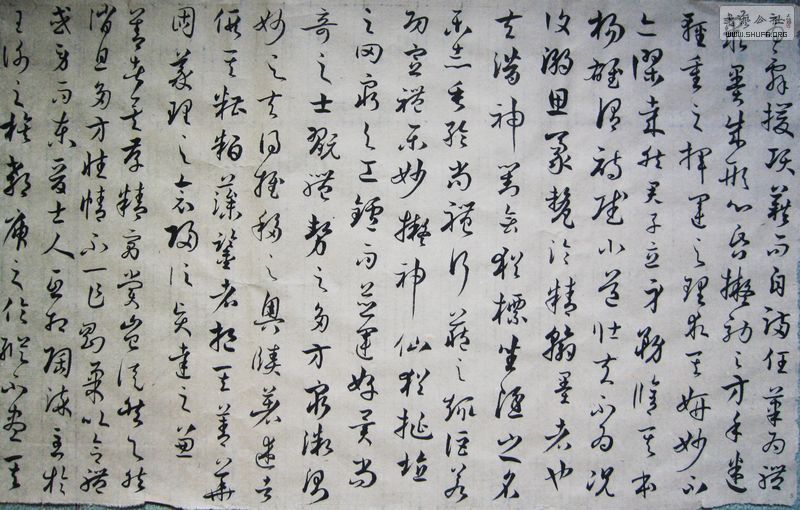 辭援項籍而自滿任筆為體
聚墨成形心昏擬効之方手迷
輕重之揮運之理求其妍妙不
亦謬哉然君子立身務脩其本
楊雄謂詩賦小道壯夫不為況
復溺思豪氂淪精翰墨者也
夫潛神對弈猶標坐隱之名
樂志垂綸尚體行藏之趣詎若
功宣禮樂妙擬神仙猶埏埴
之罔窮與工鑪而並運好異尚
奇之士翫體勢之多方窮微測
妙之夫得推移之奧賾著述者
假其糟粕藻鑒者挹其菁華
固義理之會歸信賢達之兼
善者矣存精寓賞豈徒然歟然
消息多方性情不一乍剛柔以合體
而東晉士人互相陶淬至於
王謝之族郗庾之倫縱不盡其
WWW.SHUFA.ORG